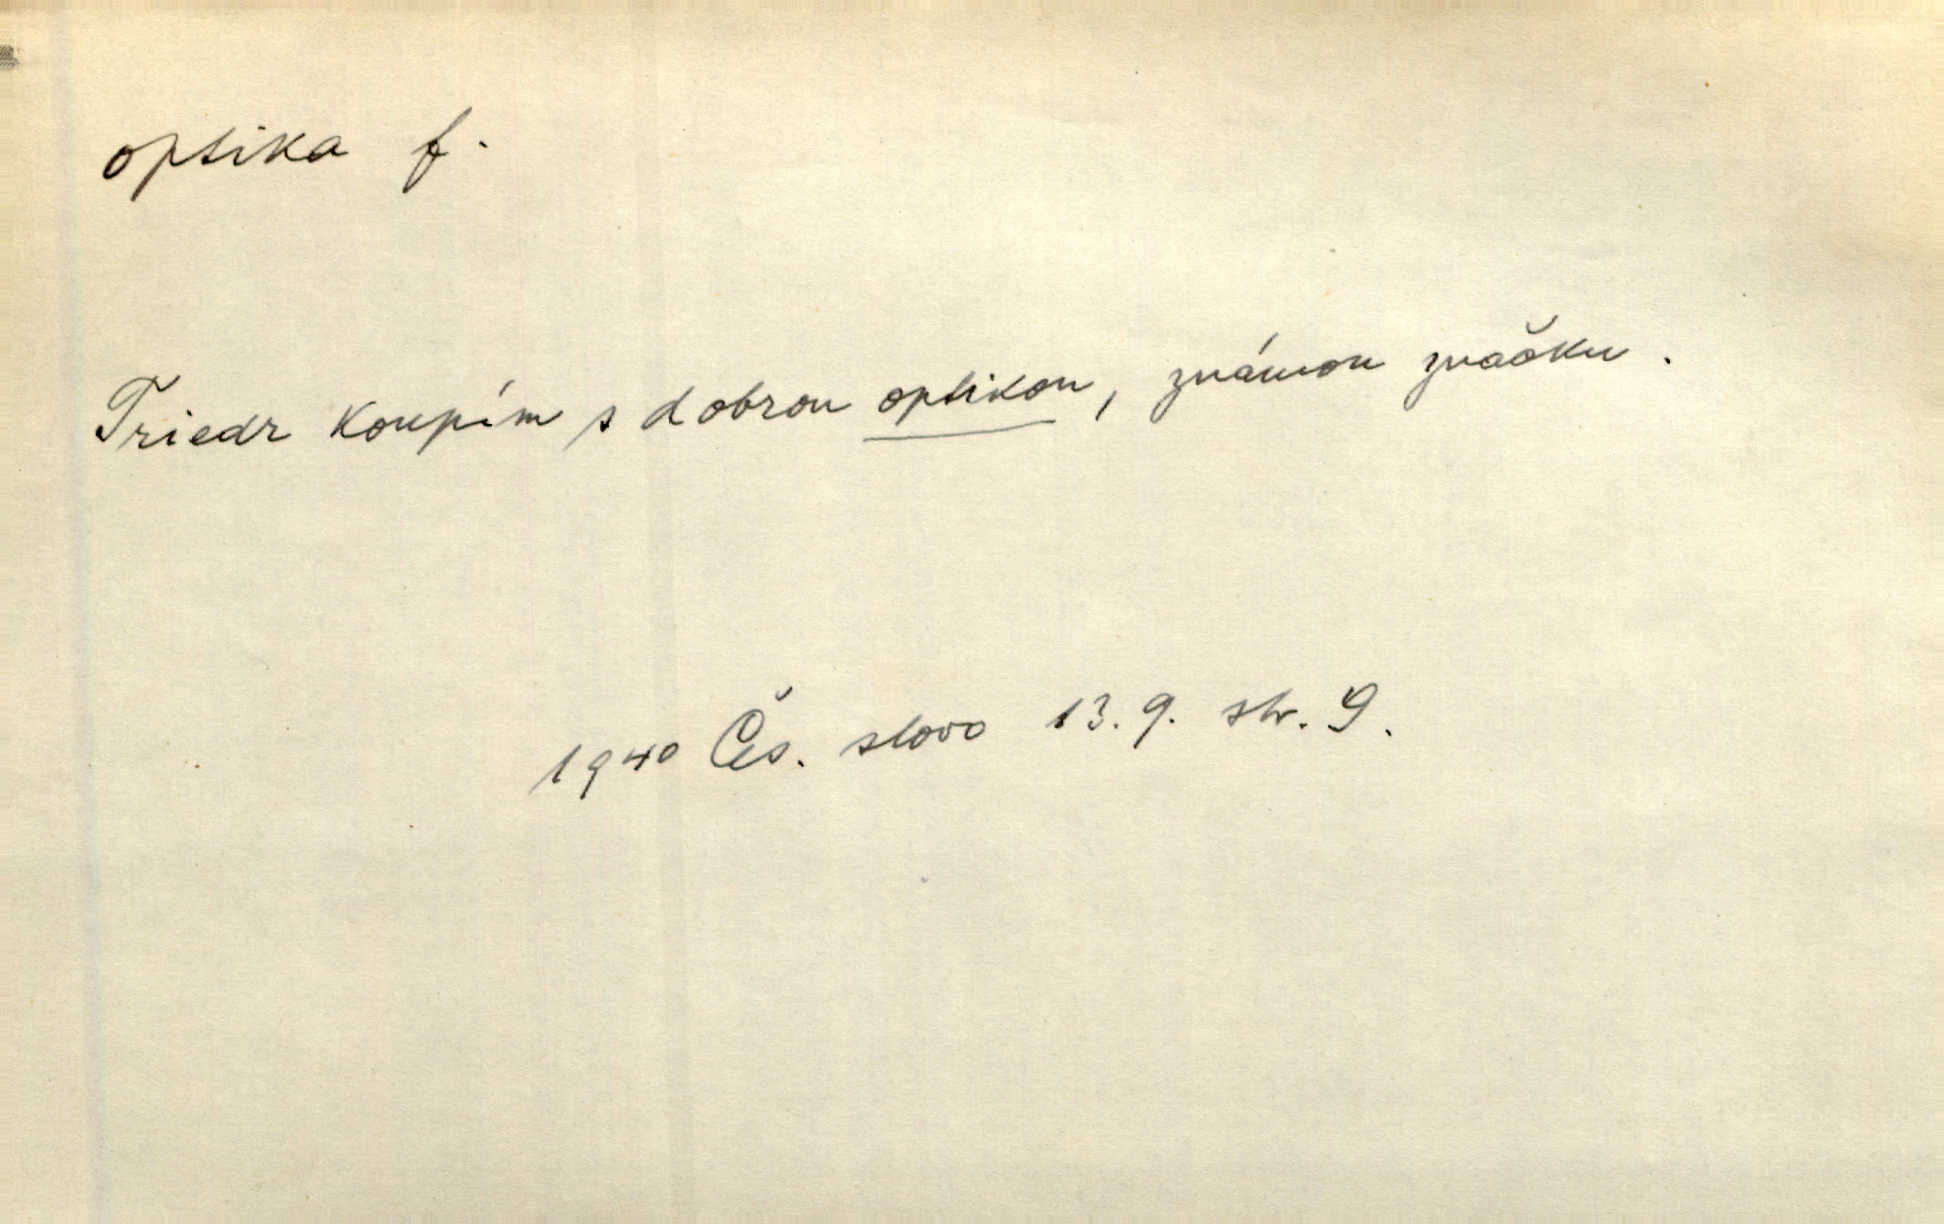 optika f.
Triedr koupím s dobrou optikou, známou značku.
1940 Čes. slovo 13. 9. str. 9.